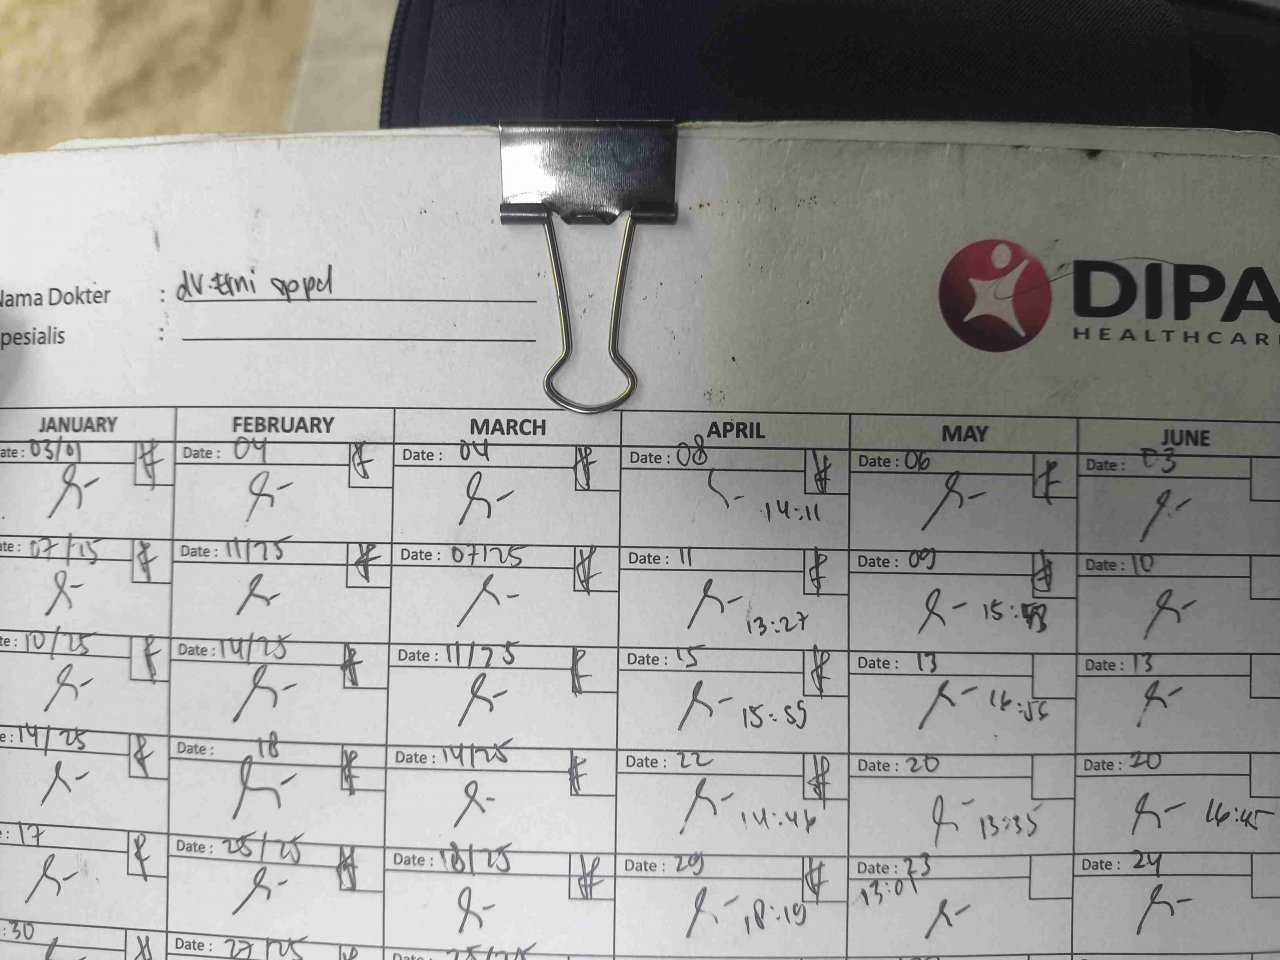 Nama Dokter : dr. Erni sppd
Spesialis :
DIPA
HEALTHCAR
JANUARY FEBRUARY MARCH APRIL MAY JUNE
ate : 03/01 Date : 04 Date : 04 Date : 08 Date : 06 Date : 03
14:11
ate : 07/15 Date : 11/25 Date : 07/25 Date : 11 Date : 09 Date : 10
13:27 15:
te : 10/25 Date : 14/25 Date : 11/25 Date : 15 Date : 13 Date : 13
15:55 16:55
e : 14/25 Date : 18 Date : 14/25 Date : 22 Date : 20 Date : 20
14:46 13:35 16:45
: 17 Date : 25/25 Date : 18/25 Date : 29 Date : 23 Date : 24
18:19 13:01
: 30 Date : 27/25 Date : 25/25